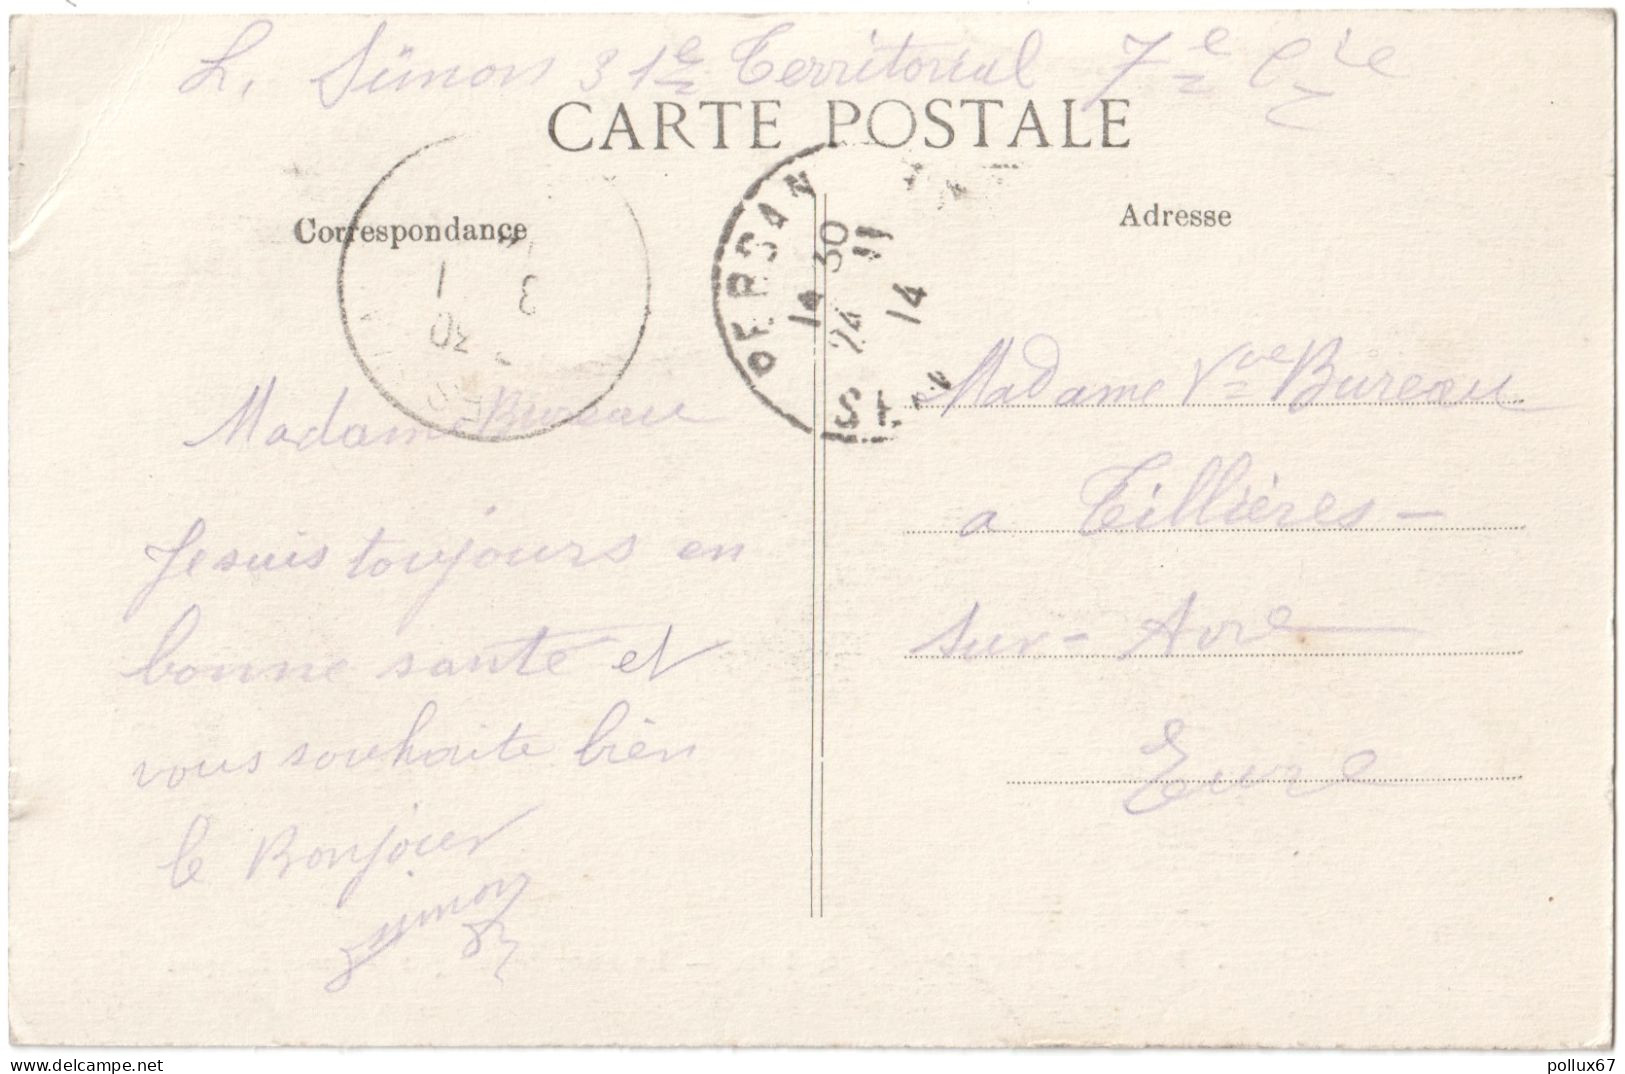 L. Simon 31e Territorial 7e Cie
CARTE POSTALE
Correspondance
Adresse
PERSAN
14 30
24 11
14
3
1
30
Madame Bureau
Je suis toujours en
bonne santé et
vous souhaite bien
le Bonjour
Simon
Madame Vve Bureau
a Tillières-
sur-Avre
Eure
delcampe.net
pollux67